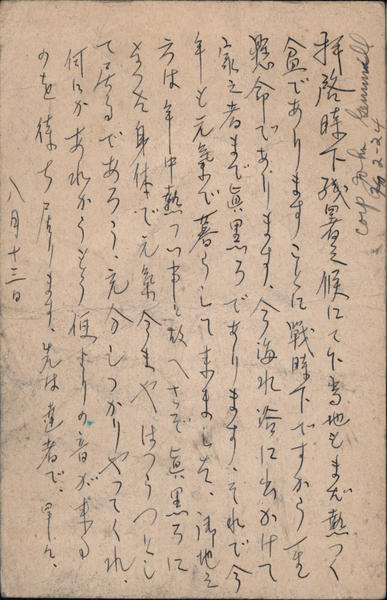 拝啓時下残暑之候にて下当地もまだ熱つく
金でありますことに戦時下ですから一生
懸命であります、今海水浴に出かけて
家之者まで真黒ろであります、それで今
年も元気で暮らして来ました、御地之
方は年中熱つい事と故へさぞ真黒ろに
そうな身体で元気今まやはつらつとし
て居るであろう、充分しつかりやつてくれ、
何にかあれからもう便よりの音が来る
のを待ち居ります、先は達者で、早々、
八月十三日
corp John